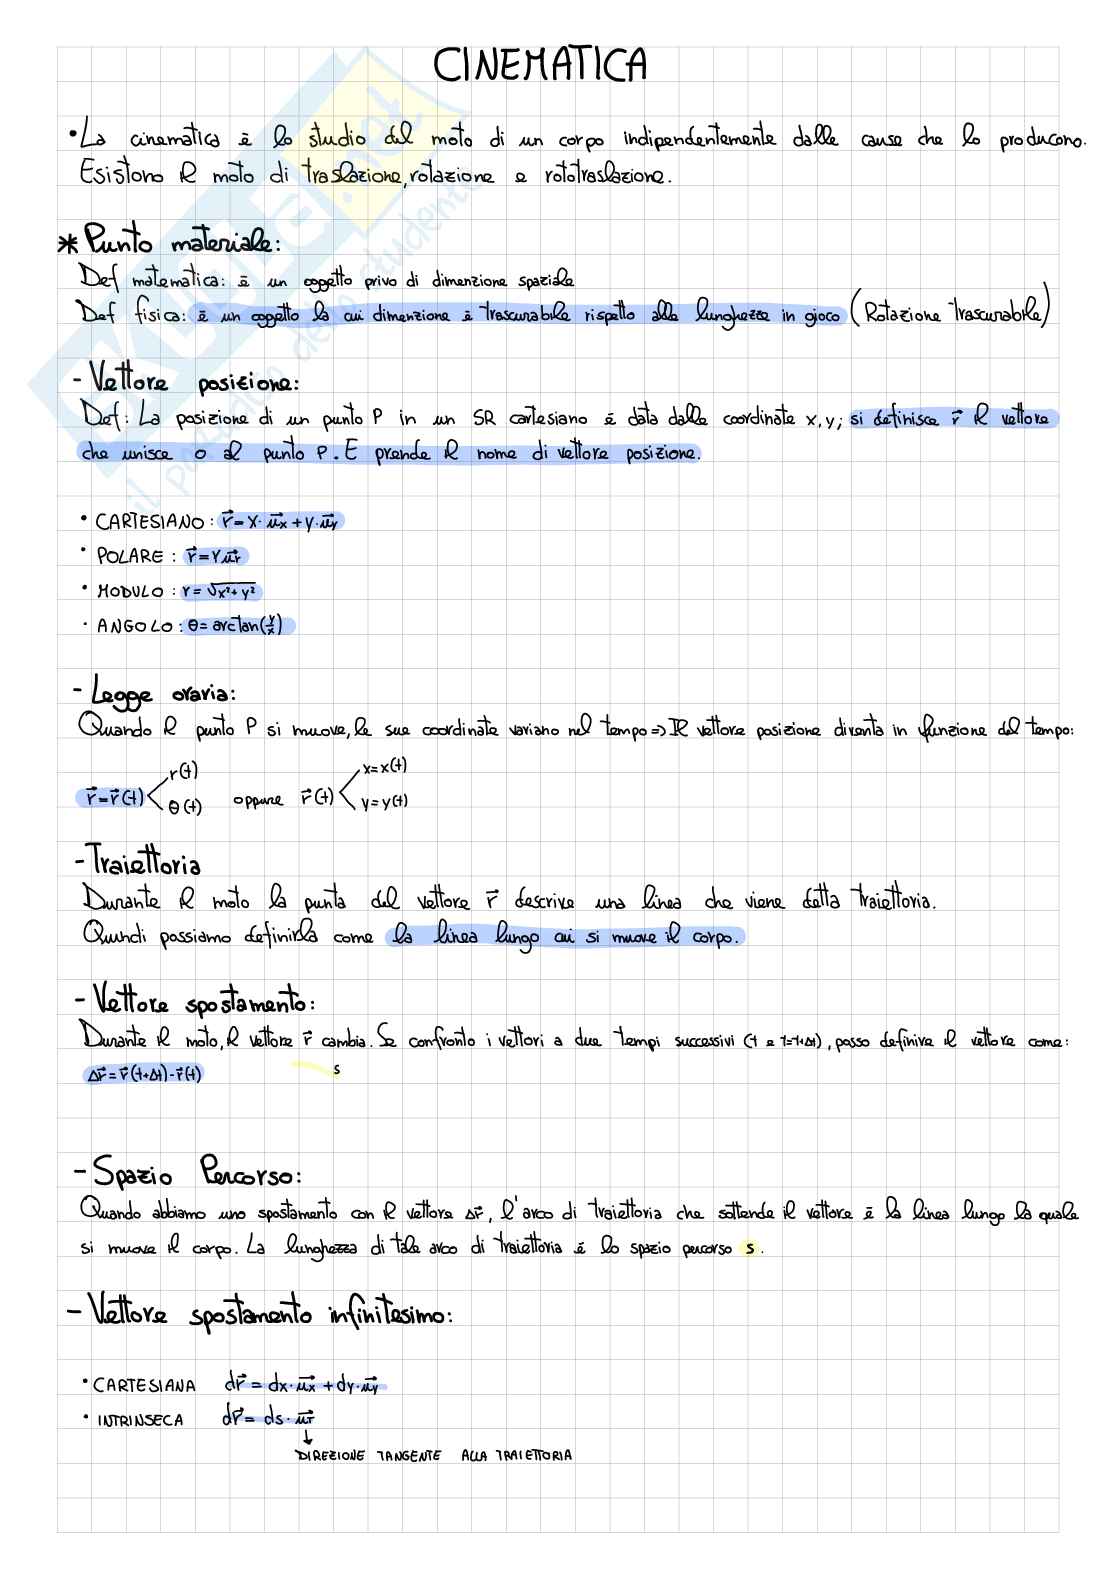 CINEMATICA
•La cinematica è lo studio del moto di un corpo indipendentemente dalle cause che lo producono.
Esistono il moto di traslazione, rotazione e rototraslazione.
* Punto materiale:
Def matematica: è un oggetto privo di dimenzione spaziale
Def fisica: è un oggetto la cui dimenzione è trascurabile rispetto alle lunghezze in gioco (Rotazione trascurabile)
- Vettore posizione:
Def: La posizione di un punto P in un SR cartesiano è data dalle coordinate x,y; si definisce r⃗ il vettore
che unisce o al punto P. E prende il nome di vettore posizione.
• CARTESIANO: r⃗=x·u⃗x+y·u⃗y
• POLARE: r⃗=r u⃗r
• MODULO: r=√x²+y²
• ANGOLO: θ=arctan(y/x)
- Legge oraria:
Quando il punto P si muove, le sue coordinate variano nel tempo => Il vettore posizione diventa in funzione del tempo:
r(t) x=x(t)
r⃗=r⃗(t) oppure r⃗(t)
θ(t) y=y(t)
- Traiettoria
Durante il moto la punta del vettore r⃗ descrive una linea che viene detta traiettoria.
Quindi possiamo definirla come la linea lungo cui si muove il corpo.
- Vettore spostamento:
Durante il moto, il vettore r⃗ cambia. Se confronto i vettori a due tempi successivi (t e t=t+Δt), posso definire il vettore come:
Δr⃗=r⃗(t+Δt)-r⃗(t) s
- Spazio Percorso:
Quando abbiamo uno spostamento con il vettore Δr⃗, l'arco di traiettoria che sottende il vettore è la linea lungo la quale
si muove il corpo. La lunghezza di tale arco di traiettoria è lo spazio percorso s.
- Vettore spostamento infinitesimo:
• CARTESIANA dr⃗=dx·u⃗x+dy·u⃗y
• INTRINSECA dr⃗=ds·u⃗T
↓
DIREZIONE TANGENTE ALLA TRAIETTORIA
SKUOLA.net
il paradiso dello studente